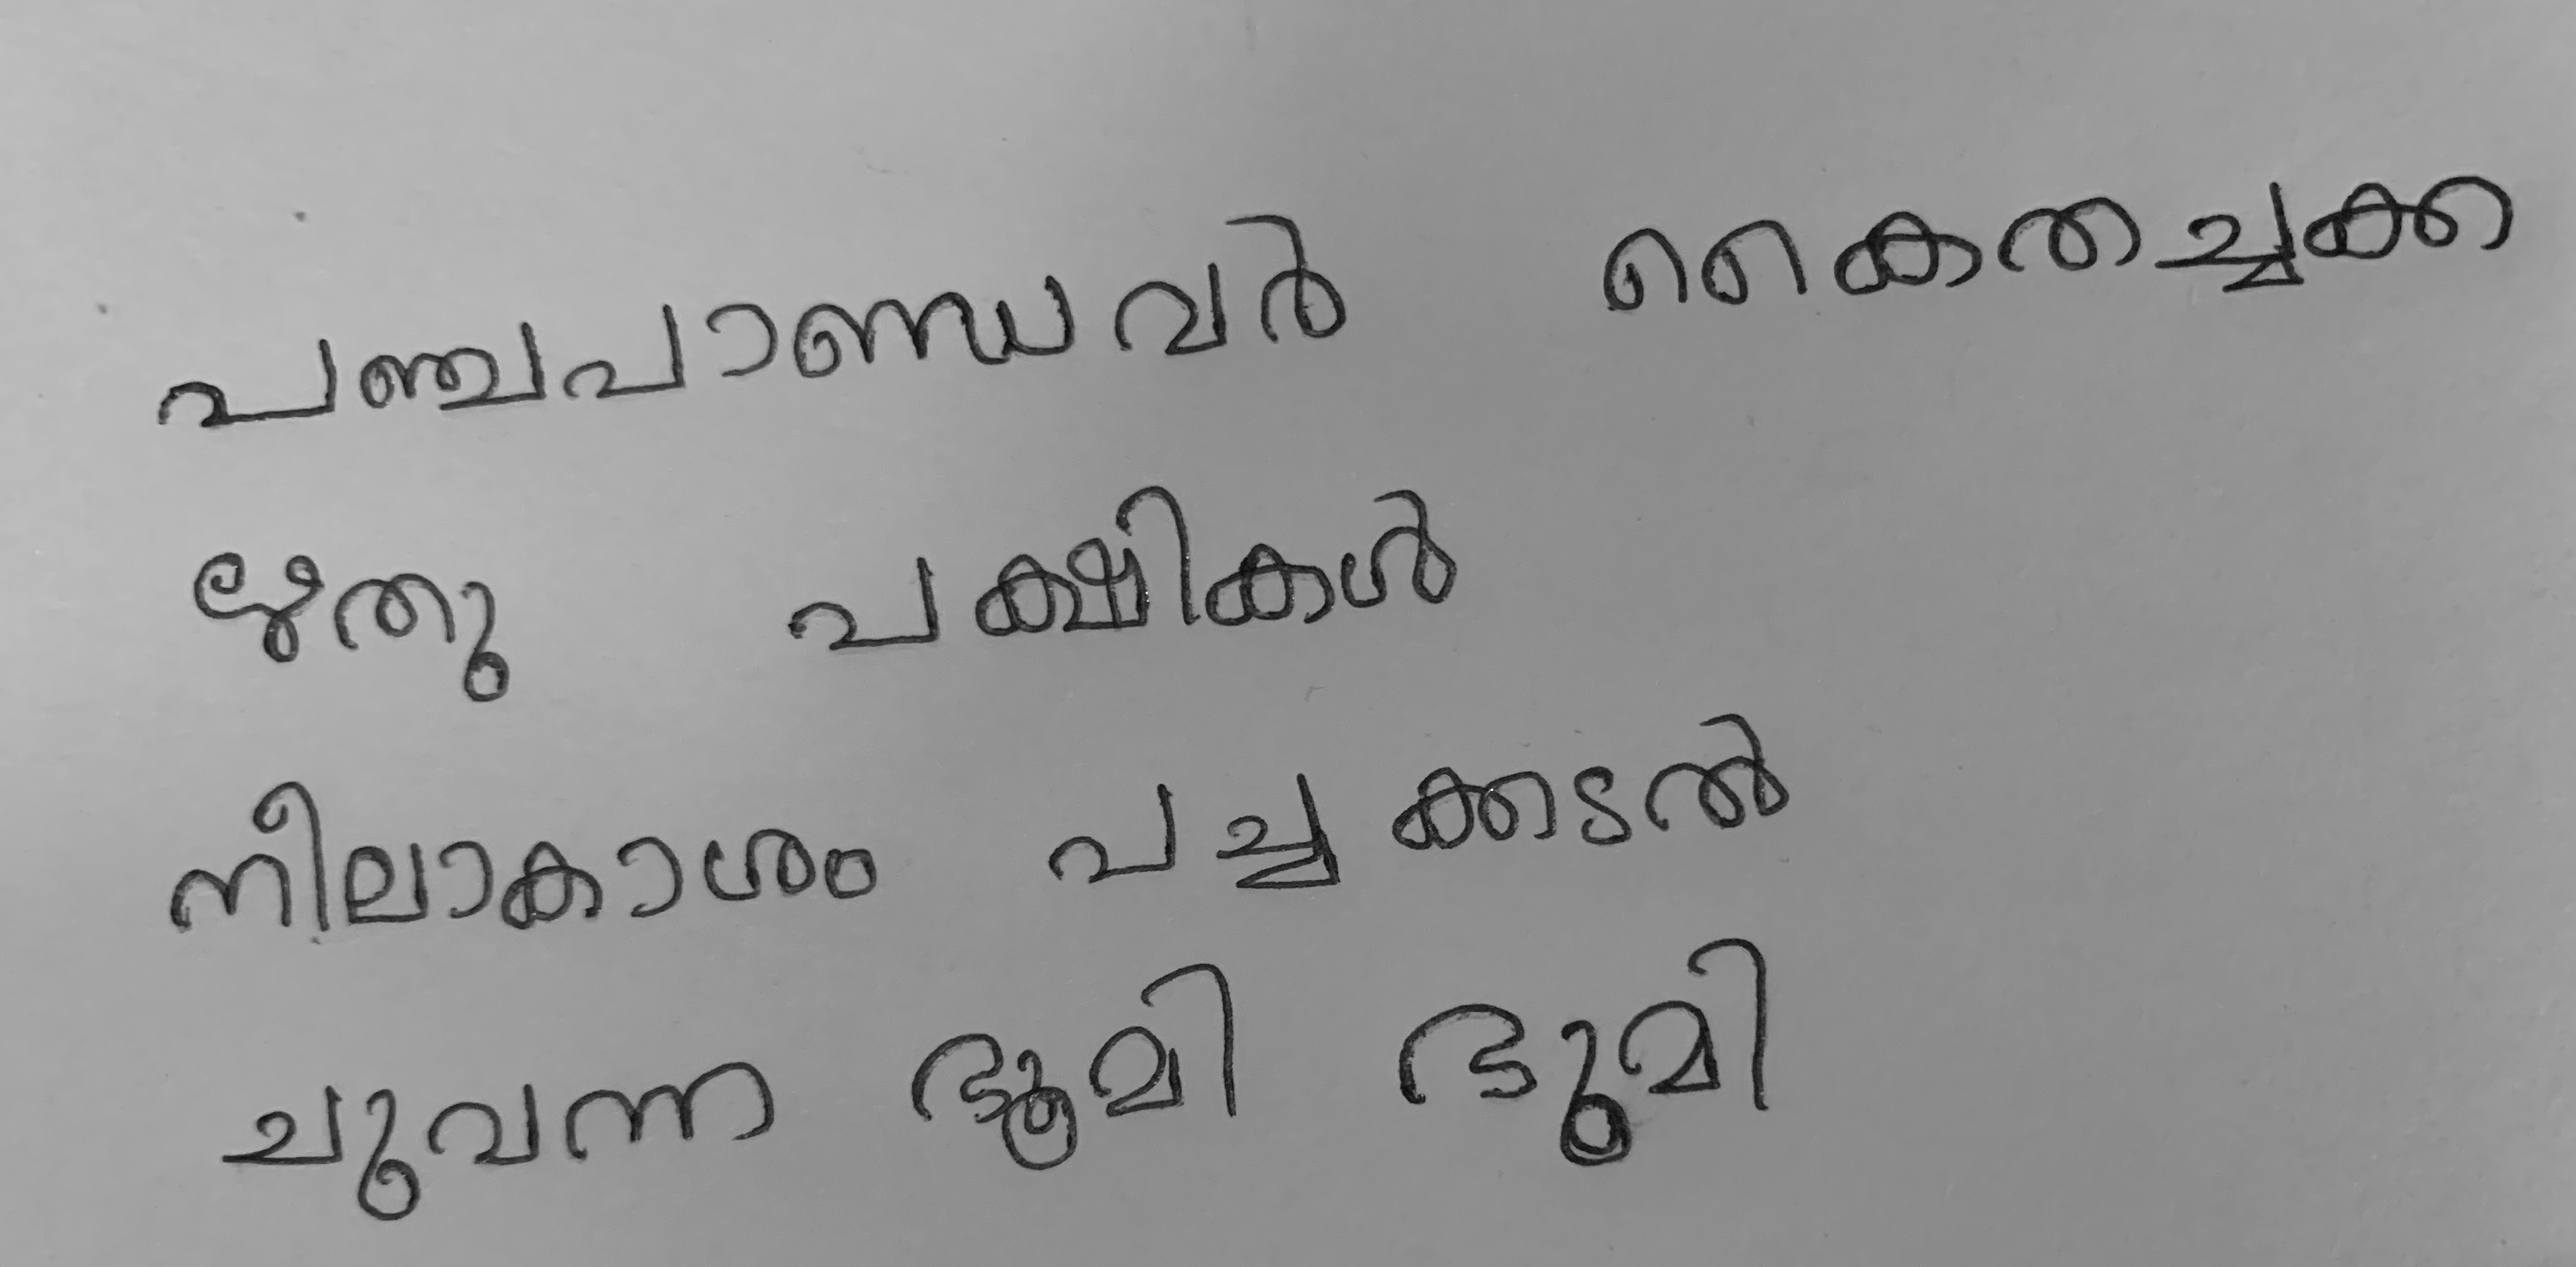 പഞ്ചപാണ്ഡവർ കൈതച്ചക്ക
ഋതു പക്ഷികൾ
നീലാകാശം പച്ചക്കടൽ
ചുവന്ന ഭൂമി ഭൂമി